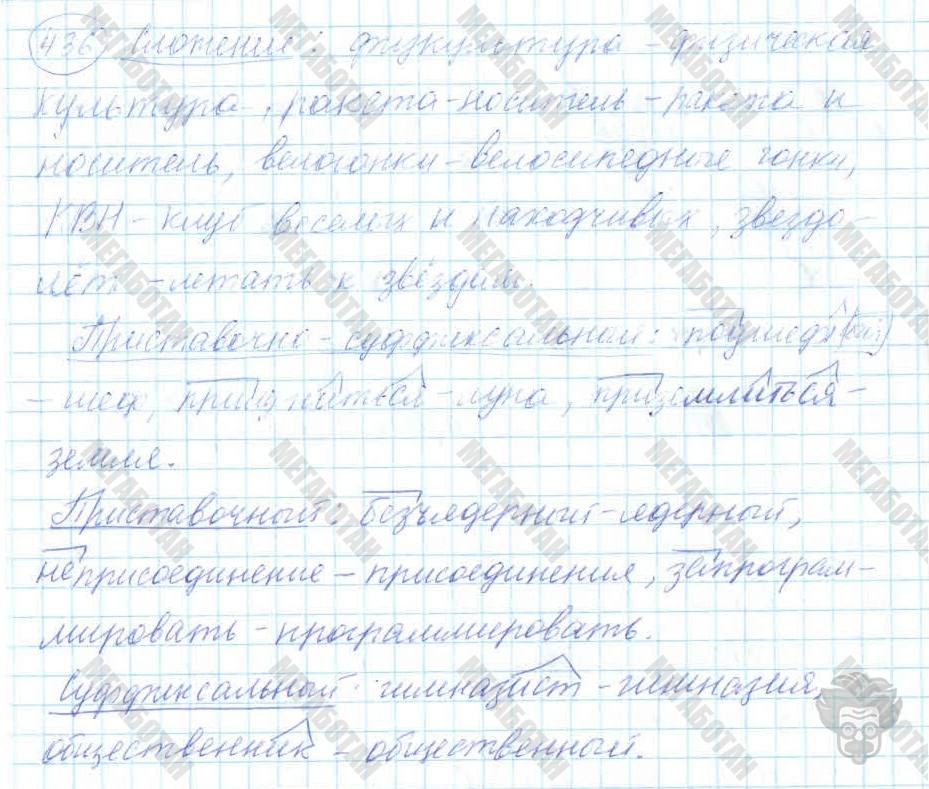 436) Сложение: физкультура - физическая
культура, ракета-носитель - ракета и
носитель, велогонки - велосипедные гонки,
КВН - клуб веселых и находчивых, звездо-
лёт - летать к звёздам.
Приставочно-суффиксальная:
- шеф, прилуниться - луна, приземлиться -
земля.
Приставочный: безъядерный - ядерный,
неприсоединение - присоединения, запрограм-
мировать - программировать.
Суффиксальный: гимназист - гимназия,
общественник - общественный.
МЕГАБОТАН